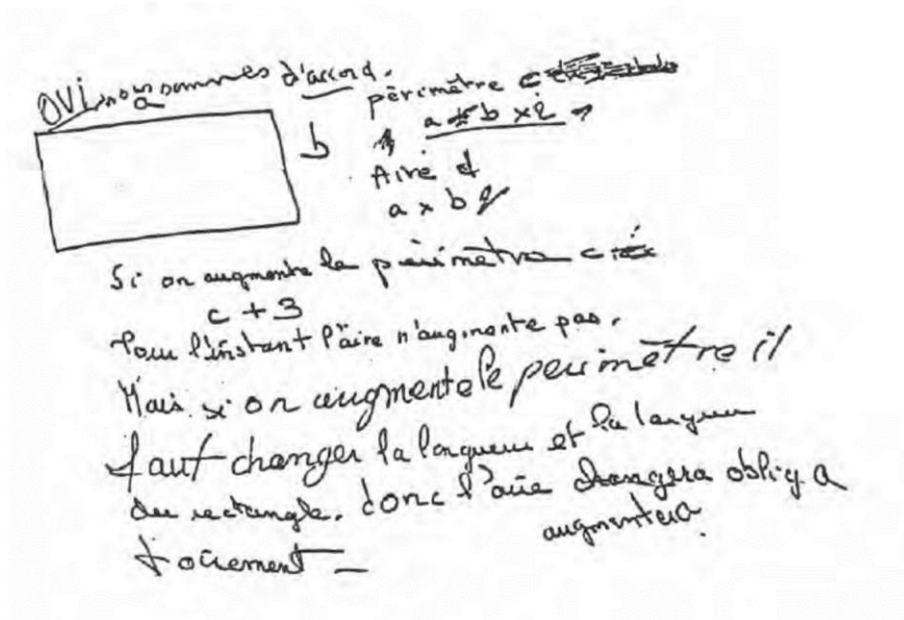 OUI nous sommes d'accord.
a
périmètre c
b
a + b x 2
Aire d
a x b
Si on augmente le périmètre c
c + 3
Pour l'instant l'aire n'augmente pas.
Mais si on augmente le périmètre il
faut changer la longueur et la largeur
du rectangle. donc l'aire changera oblig a
augmentera
toirement _